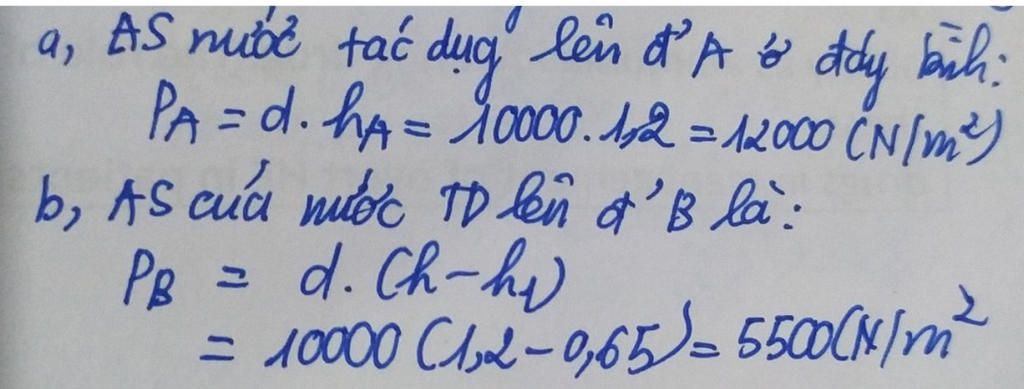 a, AS nước tác dụg lên đ' A ở đáy bình:
PA = d. hA = 10000.1,2 = 12000 (N/m²)
b, AS của nước TD lên đ' B là:
PB = d. (h-h1)
= 10000 (1,2-0,65) = 5500(N/m²